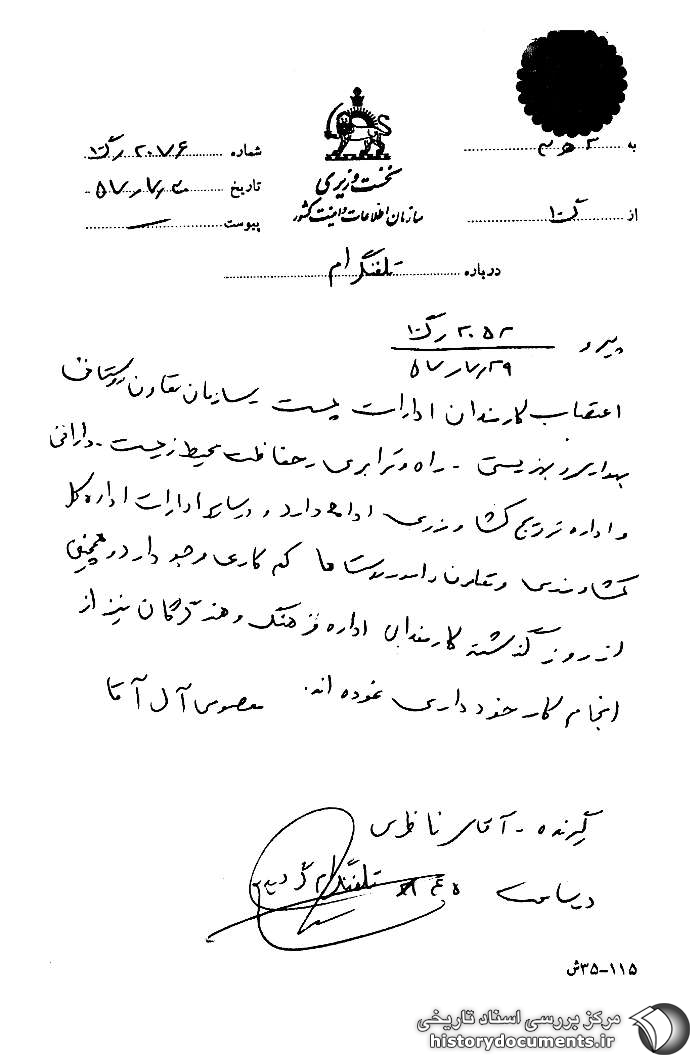 به ۳ ه ۳
از ک ۱
نخست وزیری
سازمان اطلاعات و امنیت کشور
شماره ۲۰۷۶ /ک ۱
تاریخ ۵۷/۷/۳۰
پیوست
درباره تلفنگرام
پیرو ۲۰۵۲ /ک ۱
۵۷/۷/۲۹
اعتصاب کارمندان ادارات پست - سازمان تعاون روستائی
بهداری و بهزیستی - راه و ترابری - حفاظت محیط زیست - دارائی
و اداره ترویج کشاورزی ادامه دارد و در سایر ادارات اداره کل
کشاورزی و تعاون و امور روستاها کم کاری وجود دارد و همچنین
از روز گذشته کارمندان اداره فرهنگ و هنر گرگان نیز از
انجام کار خودداری نموده اند. معصومی آل آقا
گیرنده - آقای ناظری
در ساعت تلفنگرام گردید
۳۵-۱۱۵ش
مرکز بررسی اسناد تاریخی
historydocuments.ir